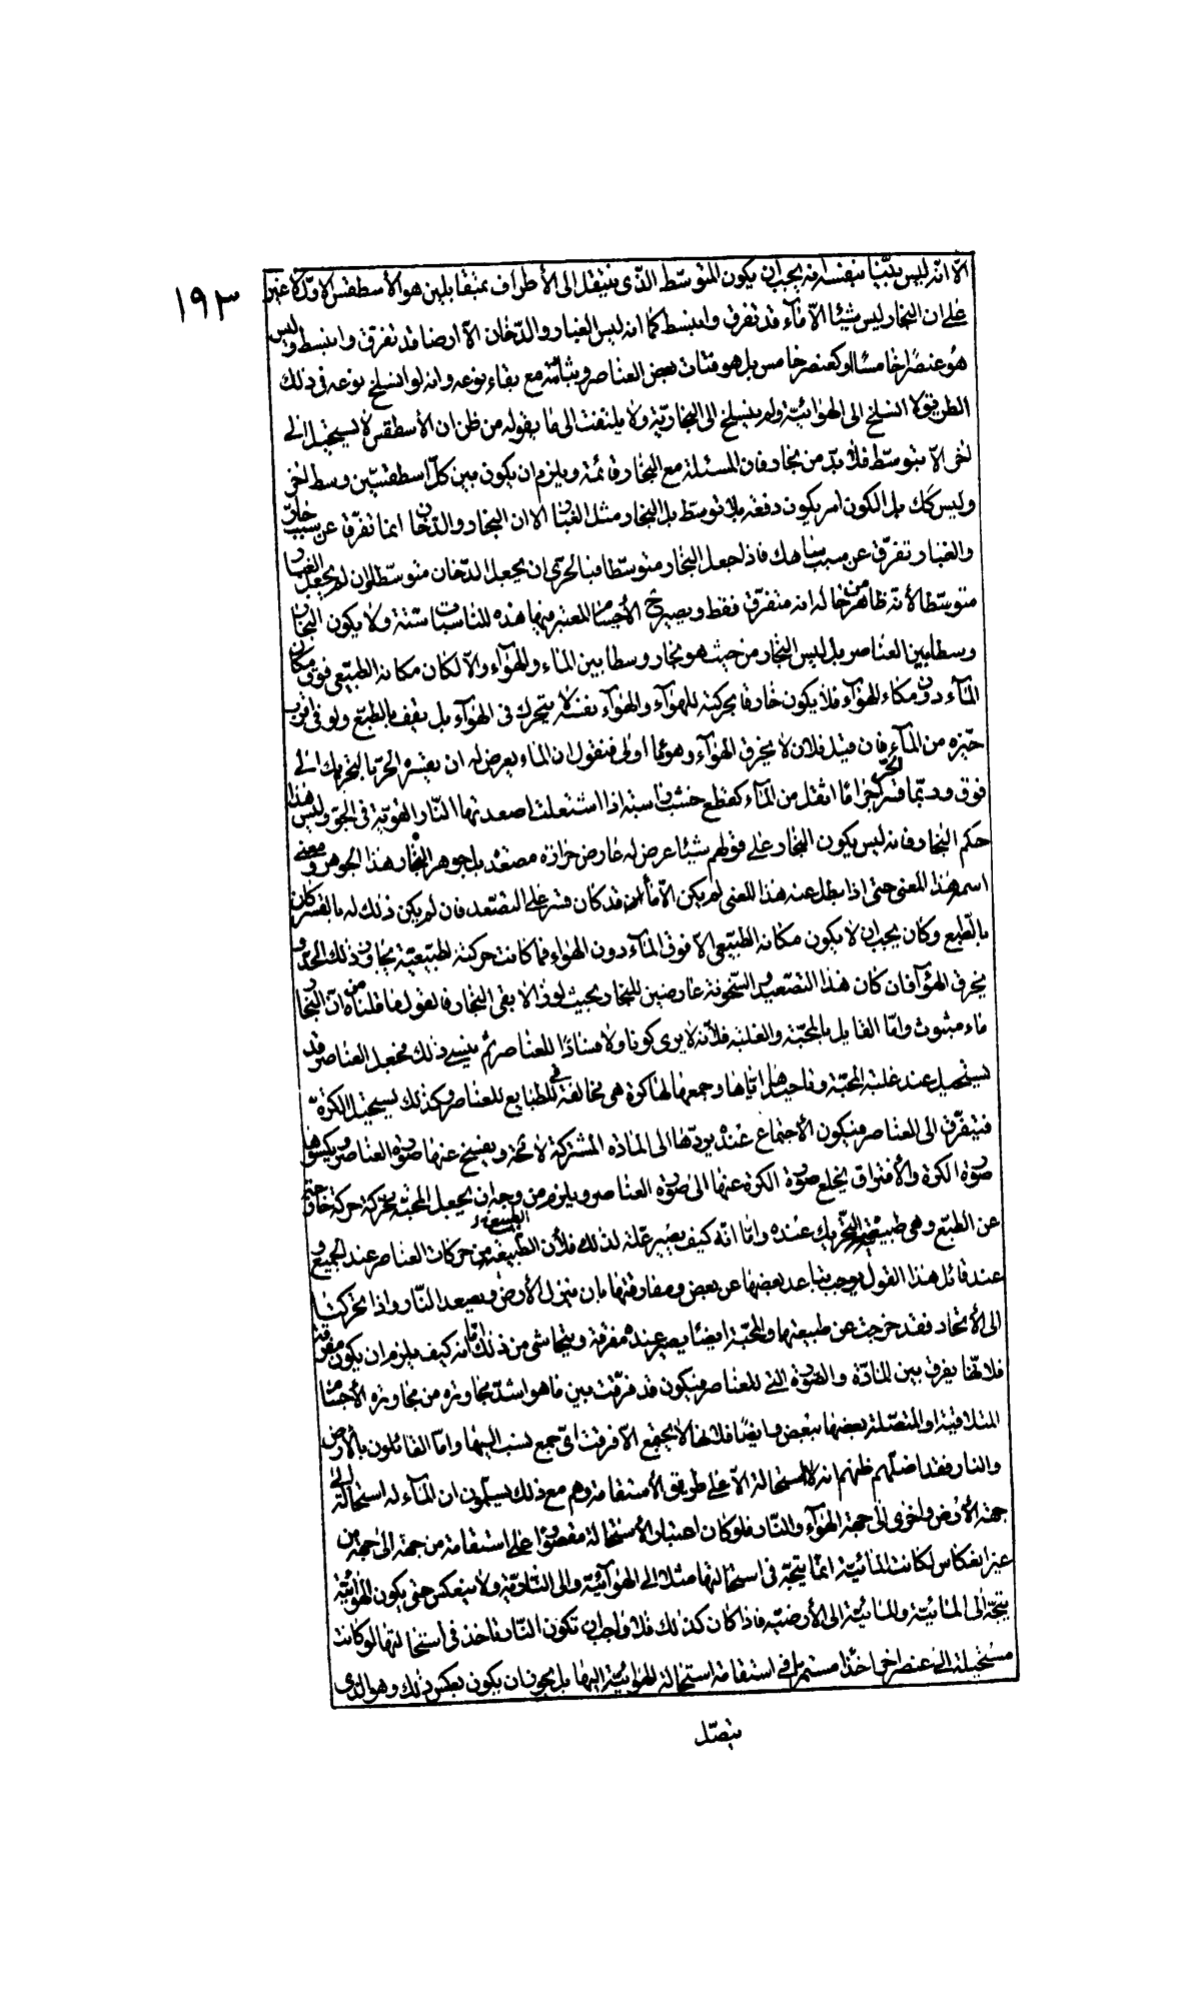 ١٩٣
الّا انّه ليس بيّنا بنفسه انه يجب ان يكون المتوسّط الذى ينتقل الى الأطراف بمتقابلين هو الأسطقس الاوّل لا غير
على ان البخار ليس شيئا الّا ماء قد تفرق وانبسط كما انه ليس الغبار والدّخان الّا ارضا قد تفرق وانبسط وليس
هو عنصرا خامسًا او كعنصر خامس بل هو فتات بعض العناصر وبثاثته مع بقاء نوعه وانه لو انسلخ نوعه فى ذلك
الطريق لا انسلخ الى الهوائيّة ولم ينسلخ الى البخاريّة ولا يلتفت الى ما يقوله من ظن ان الأسطقس لا يستحيل الى
اخر الّا بتوسّط فلا بدّ من بخار فان المسئلة مع البخار قائمة ويلزم ان يكون بين كلّ اسطقسّين وسط اخر
وليس كك بل الكون امر يكون دفعة بلا توسّط بل البخار مثل الغبار الا ان البخار والدّخان انما تفرّقا عن سبب حارّ
والغبار تفرّق عن سبب ساحك فاذا جعل البخار متوسّطا فبالحرّى ان يجعل الدّخان متوسّطا وان لم يجعل الغبار
متوسّطا لأنّه ظاهر من حاله انه متفرّق فقط ويصير ح الأجسام المعتبر فيها هذه المناسبات ستة ولا يكون البخار
وسطا بين العناصر بل ليس البخار من حيث هو بخار وسطا بين الماء والهوآء والّا لكان مكانه الطبيعى فوق مكان
المآء دون مكان الهوآء فلا يكون خارقا بحركته للهوآء والهوآء نفسه لا يتحرك فى الهوآء بل يقف بالطبع ولو فى اقرب
حيّزه من المآء فان قيل فلان لا يخرق الهوآء وهو ماء اولى فنقول ان الماء يعرض له ان يقسره الحرّ بالتحريك الى
فوق وربّما قسر الحرّ اجراما اثقل من المآء كقطع خشب قاسية اذا اشتعلت اصعدتها النّار القويّة فى الجوّ وليس هذا
حكم البخار فانه ليس يكون البخار على قولهم شيئا عرض له عارض حرارة مصعّد بل جوهر البخار هذا الجوهر ومعنى
اسمه هذا المعنى حتى اذا بطل عنه هذا المعنى لم يكن الّا ماء قد كان قسر على التصعّد فان لم يكن ذلك له بالقسر كان
بالطّبع وكان يجب ان لا يكون مكانه الطبيعى الا فوق المآء دون الهواء فما كانت حركته الطبيعيّة بجاوز ذلك الحدّ و
يخرق الهوآء فان كان هذا التصعيد والسّخونة عارضين للبخار بحيث لو زالا بقى البخار فالقول ما قلناه من انّ البخار
ماء مبثوث وامّا القايل بالمحبّة والغلبة فلأنّه لا يرى كونا ولا فسادًا للعناصر ثم ينسى ذلك فيجعل العناصر قد
تستحيل عند غلبة المحبّة وتاحيدها اياها وجمعها لها كرة هى مخالفة فى الطبايع للعناصر وكذلك يستحيل الكرة
فيتفرّق الى العناصر فيكون الأجتماع عنده يردّها الى المادة المشتركة لا محة ويفسخ عنها صورة العناصر ويكسوها
صورة الكرة والأفتراق يخلع صورة الكرة عنها الى صورة العناصر ويلزم من وجه ان يجعل المحبّة محرّكة حركة خارجة
عن الطبّع وهى طبيعيّة التّحريك عنده وامّا انّه كيف يصير علّة لذلك فلأن الطبيعيّة من حركات العناصر عند الجميع و
عند قائل هذا القول يوجب تباعد بعضها عن بعض ومفارقتها بان ينزل الأرض ويصعد النّار واذا تحرّكت
الى الأتحاد فقد خرجت عن طبيعتها والمحبّة ايضًا يصير عنده مفرقة ويتحاشى من ذلك امّا انه كيف يلزم ان يكون مفرقة
فلانّها يفرق بين المادّة والصورة التى للعناصر فيكون قد فرّقت بين ما هو اشدّ مجاورة من مجاورة الأجسام
المتلاقية او المتصلة بعضها ببعض وايضًا فانها لا يجمع الّا فرقت اىّ جمع نسب اليها وامّا القائلون بالأرض
والنار فقد اضلّهم ظنهم انه لا استحالة الّا على طريق الأستقامة وهم مع ذلك يسلّمون ان المآء له استحالة الى
جهة الأرض واخرى الى جهة الهوآء والنّار فلو كان اعتبار الأستحالة مقصورًا على استقامة من جهة الى جهة من
غير انعكاس لكانت المائيّة انّما يتجه فى استحالتها مثلا الى الهوآئيّة والى النّاريّة ولا ينعكس حتى يكون الهوائيّة
يتجّه الى المائيّة والمائيّة الى الأرضيّة فاذا كان كذلك فلا واجب ان تكون النّار تاخذ فى استحالتها لو كانت
مستحيلة الى عنصر اخر اخذا مستمرا فى استقامة استحالة الهوائيّة اليها بل يجوز ان يكون بعكس ذلك وهو الذى
يتصّل